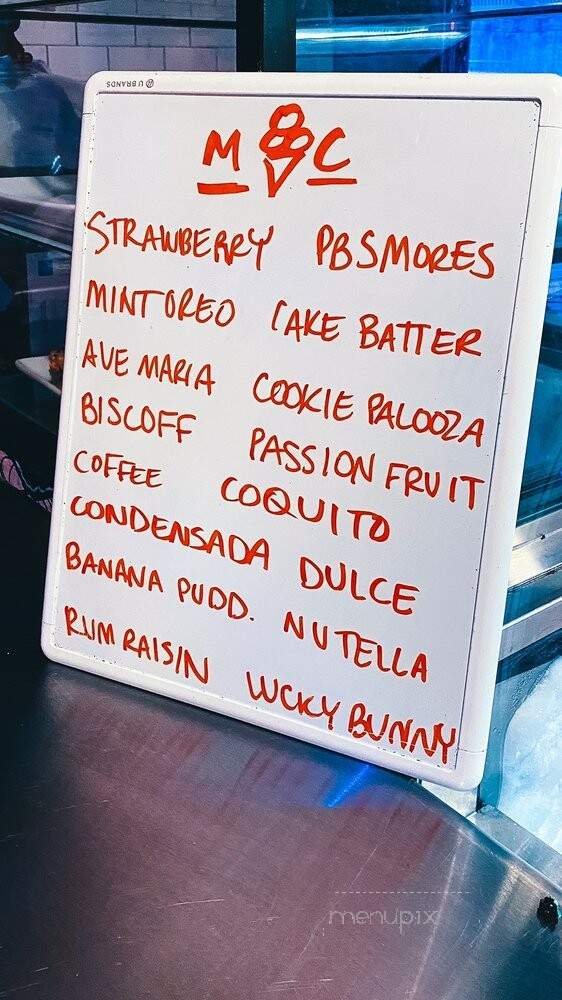 U BRANDS
M C
STRAWBERRY PBSMORES
MINT OREO CAKE BATTER
AVE MARIA COOKIE PALOOZA
BISCOFF PASSION FRUIT
COFFEE COQUITO
CONDENSADA DULCE
BANANA PUDD. NUTELLA
RUM RAISIN LUCKY BUNNY
menupix